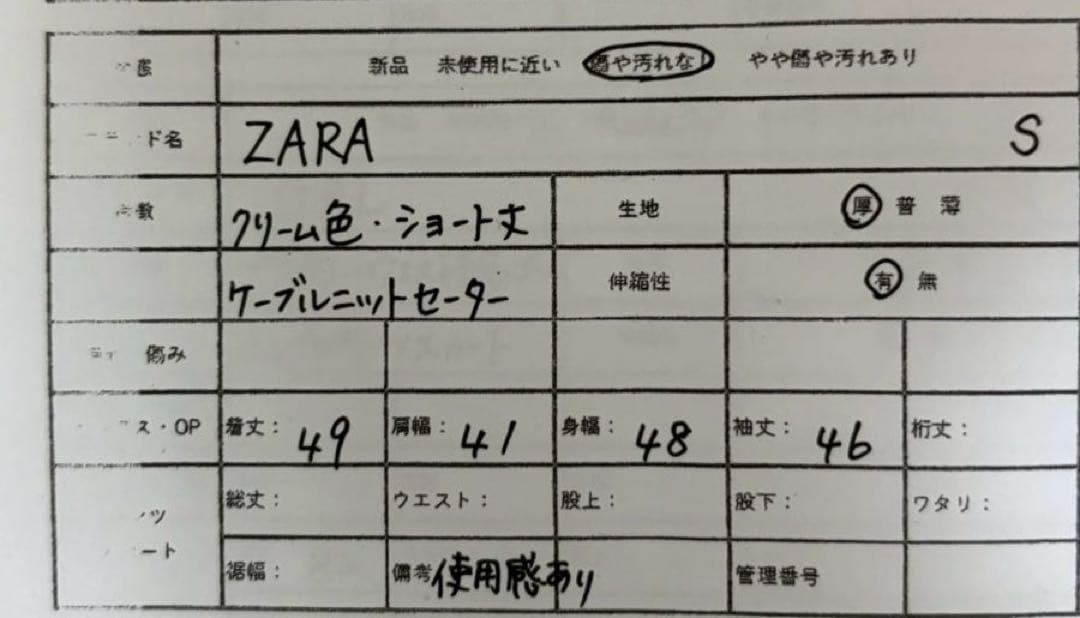 新品 未使用に近い 傷や汚れなし やや傷や汚れあり
ド名 ZARA S
数 クリーム色・ショート丈 生地 厚 普 薄
ケーブルニットセーター 伸縮性 有 無
傷み
ス・OP 着丈: 49 肩幅: 41 身幅: 48 袖丈: 46 裄丈:
ツ 総丈: ウエスト: 股上: 股下: ワタリ:
ート 裾幅: 備考 使用感あり 管理番号